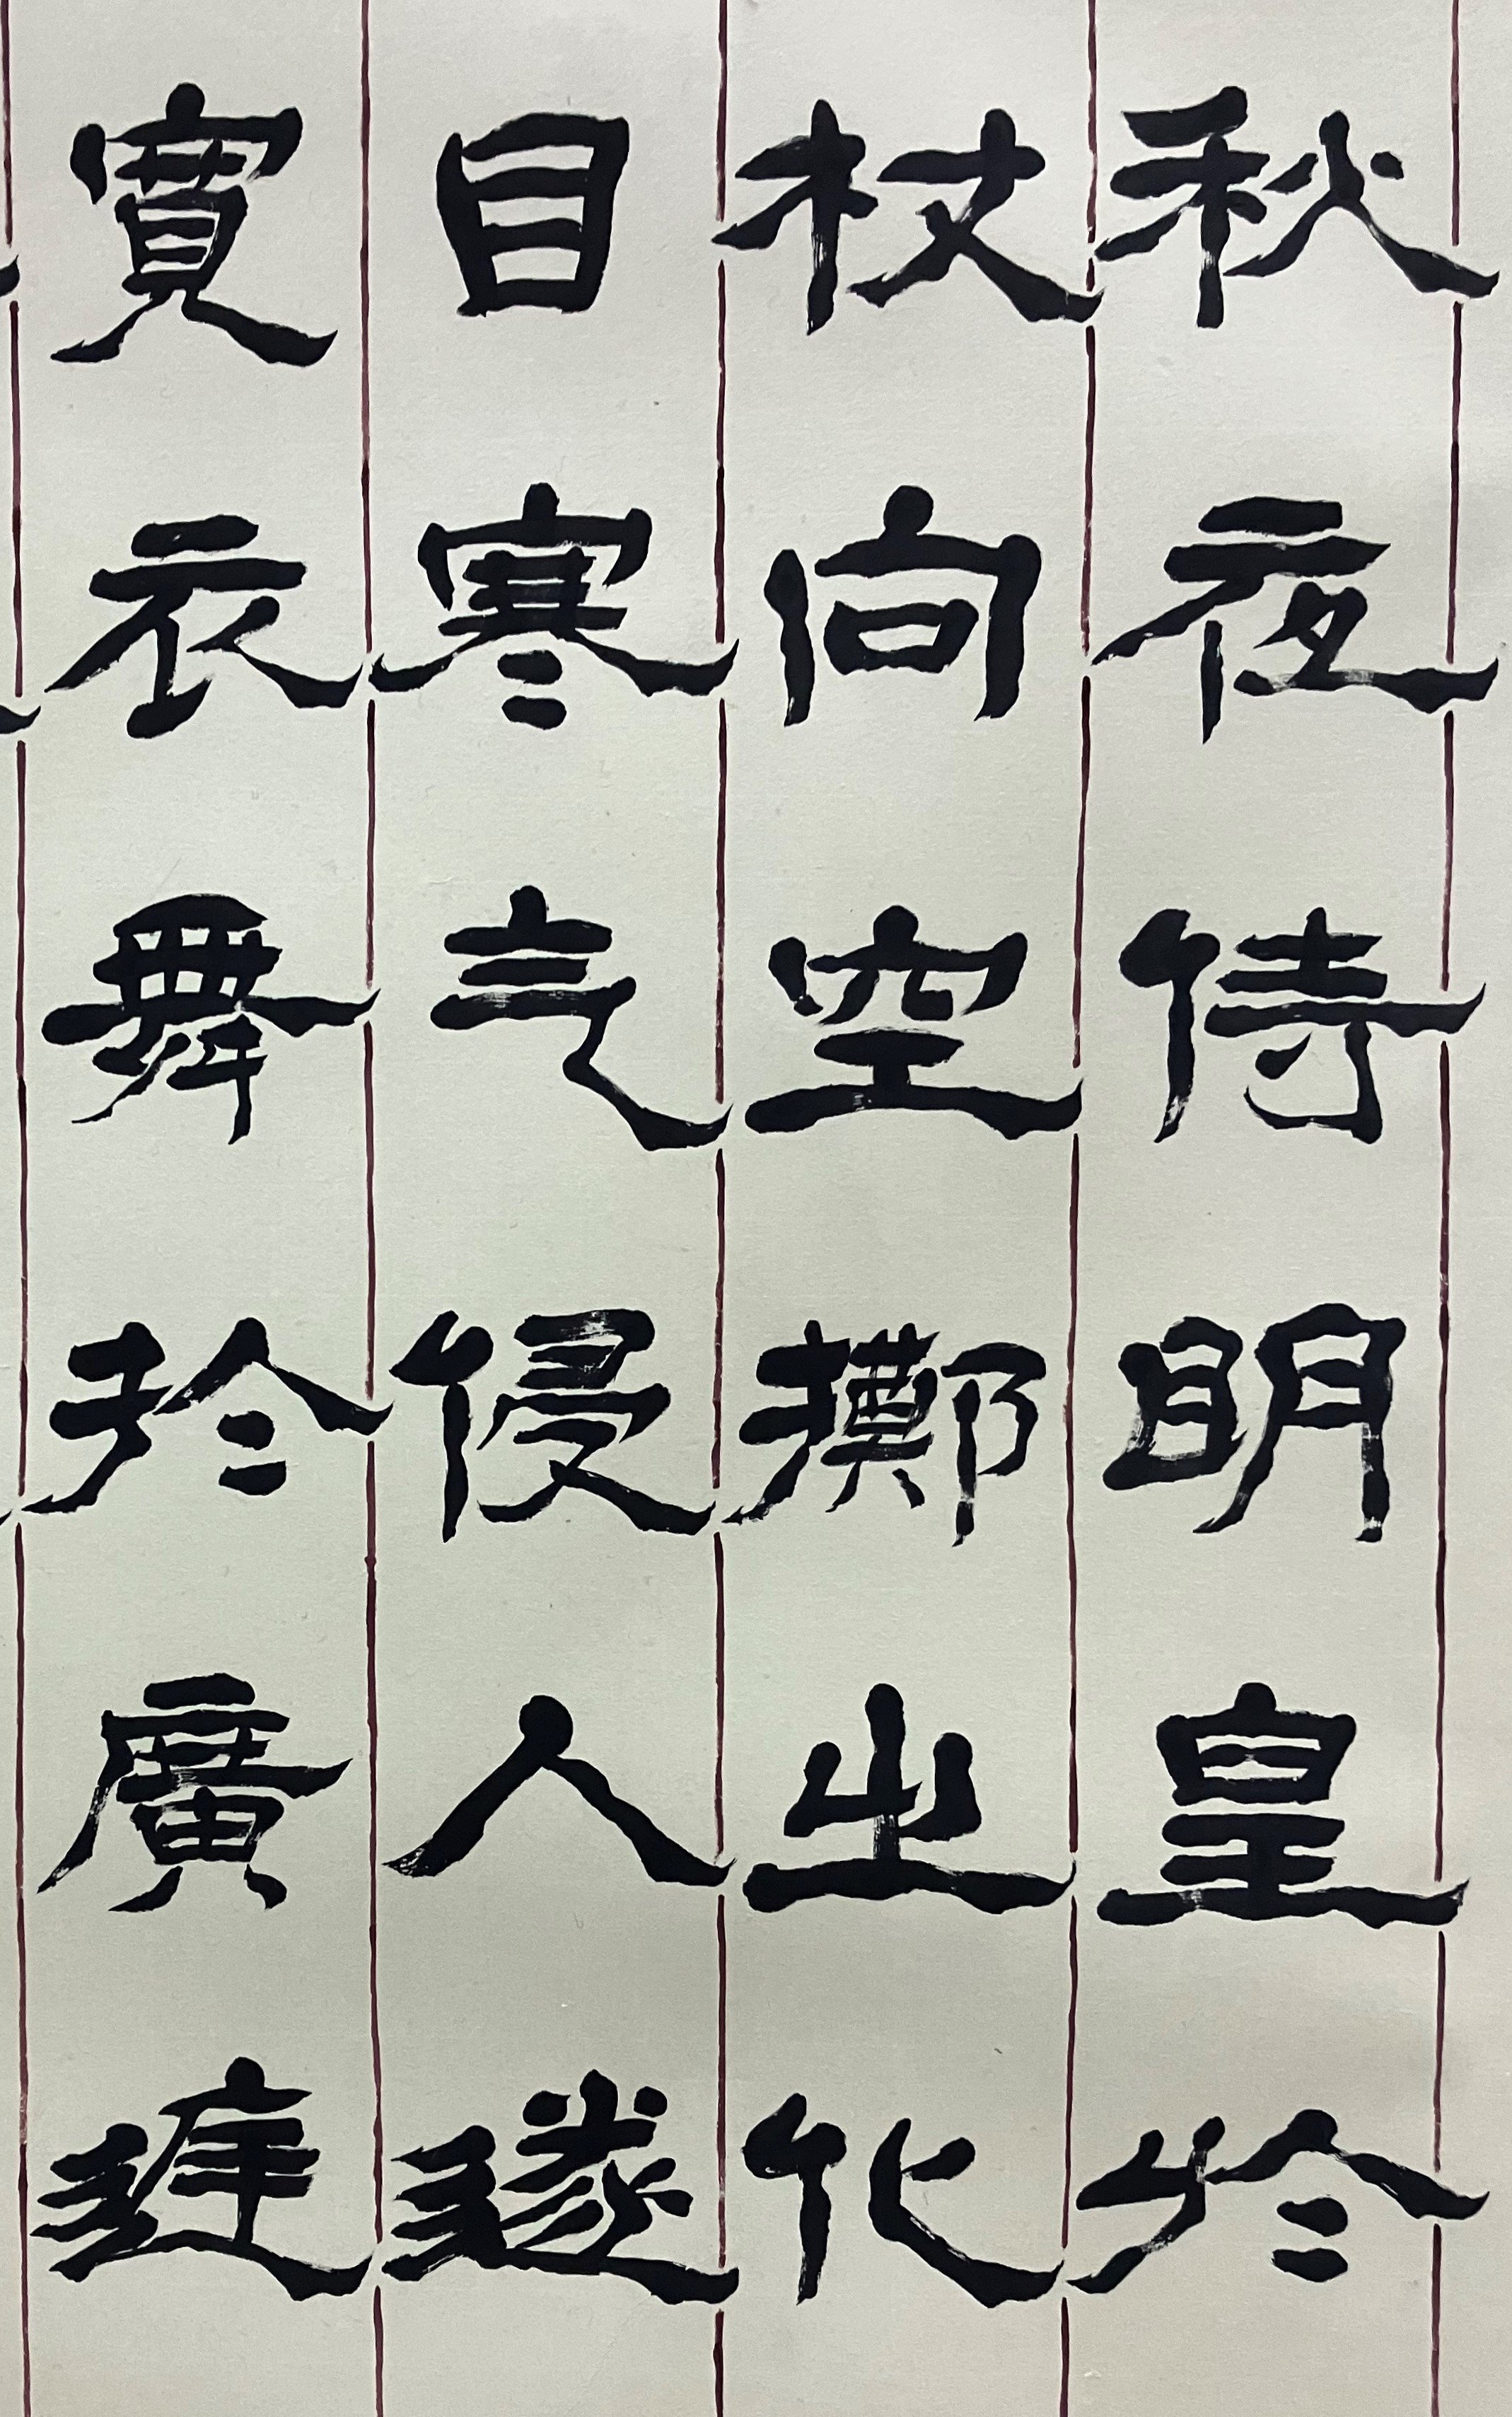 秋夜侍明皇於
杖向空擲之化
目寒气侵人遂
寬衣舞於廣連